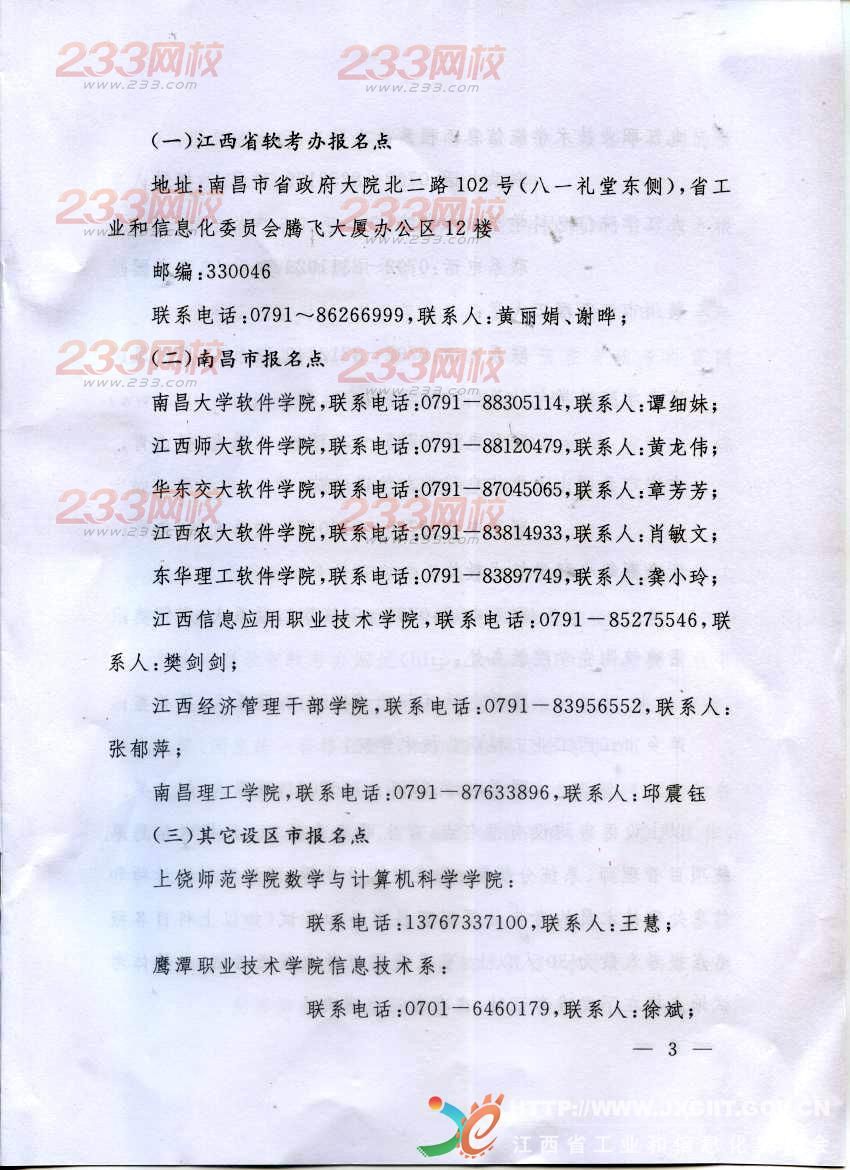 233网校 233网校
www.233.com www.233.com
(一)江西省软考办报名点
地址:南昌市省政府大院北二路102号(八一礼堂东侧),省工
233网校 233网校
www.233.com www.233.com
业和信息化委员会腾飞大厦办公区12楼
邮编:330046
联系电话:0791～86266999,联系人:黄丽娟、谢晔;
233网校 233网校
www.233.com www.233.com
(二)南昌市报名点
南昌大学软件学院,联系电话:0791—88305114,联系人:谭细妹;
江西师大软件学院,联系电话:0791—88120479,联系人:黄龙伟;
华东交大软件学院,联系电话:0791—87045065,联系人:章芳芳;
233网校 233网校
www.233.com www.233.com
江西农大软件学院,联系电话:0791—83814933,联系人:肖敏文;
东华理工软件学院,联系电话:0791—83897749,联系人:龚小玲;
江西信息应用职业技术学院,联系电话:0791—85275546,联
系人:樊剑剑;
江西经济管理干部学院,联系电话:0791—83956552,联系人:
张郁萍;
南昌理工学院,联系电话:0791—87633896,联系人:邱震钰
(三)其它设区市报名点
上饶师范学院数学与计算机科学学院:
联系电话:13767337100,联系人:王慧;
鹰潭职业技术学院信息技术系:
联系电话:0701—6460179,联系人:徐斌;
— 3 —
HTTP://WWW.JXCIIT.GOV.CN
江西省工业和信息化委员会